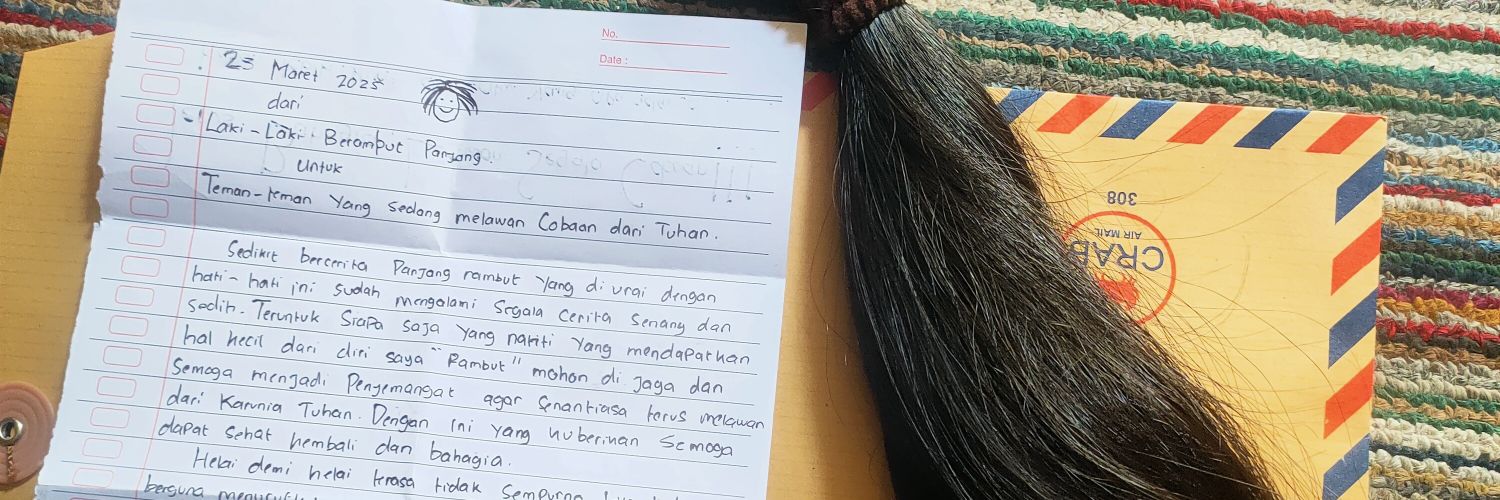 No.
Date :
23 Maret 2025
dari
Laki-Laki Berambut Panjang.
Untuk
Teman-teman Yang sedang melawan Cobaan dari Tuhan.
Sedikit bercerita Panjang rambut Yang di urai dengan
hati-hati ini sudah mengalami Segala Cerita Senang dan
sedih. Teruntuk Siapa saja Yang nanti Yang mendapatkan
hal kecil dari diri saya "Rambut" mohon di jaga dan
Semoga menjadi Penyemangat agar Senantiasa terus melawan
dari Karunia Tuhan. Dengan ini Yang kuberikan Semoga
dapat sehat kembali dan bahagia.
Helai demi helai terasa tidak Sempurna
berguna
308
AIR MAIL
CRAB